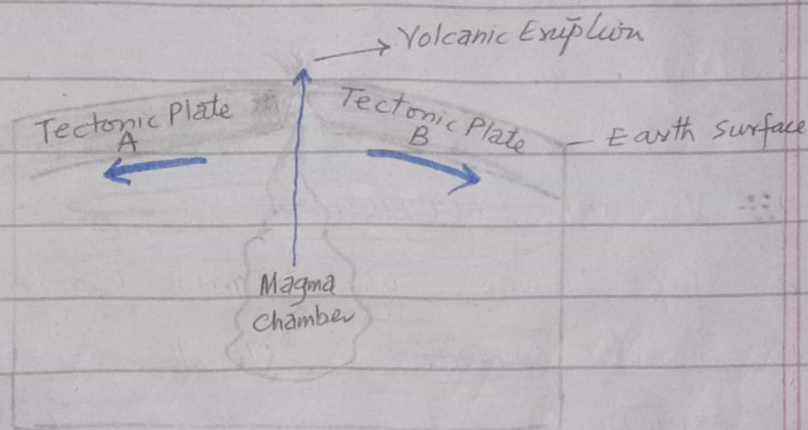 Volcanic Eruption
Tectonic Plate
A
Tectonic Plate
B
Earth Surface
Magma
Chamber